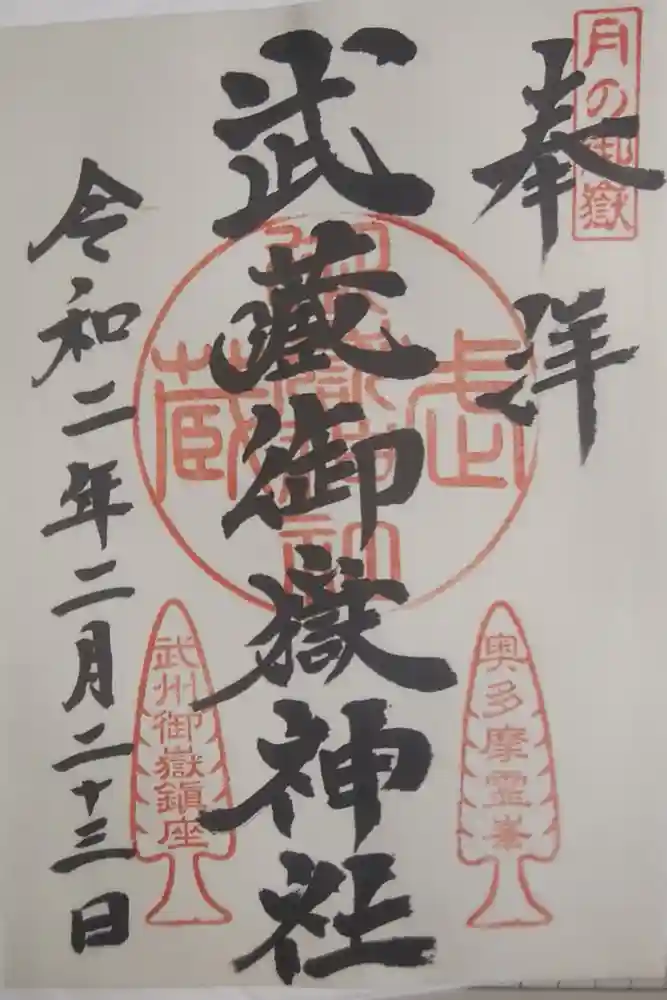 月の御嶽
奉拝
武蔵御嶽神社
令和二年二月二十三日
奥多摩霊峯
武州御嶽鎮座